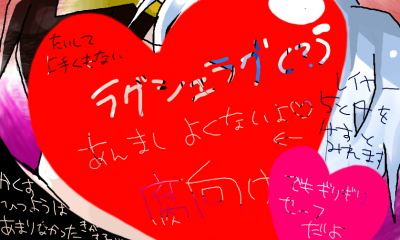 たいして
上手くもない
ラグジェラグどう
あんまし よくないよ♡
←
腐向け
レイヤー
5と4を
けすと
みれます
でもギリギリ
せーフ
だよ
かくす
ひつようは
あまりなかった